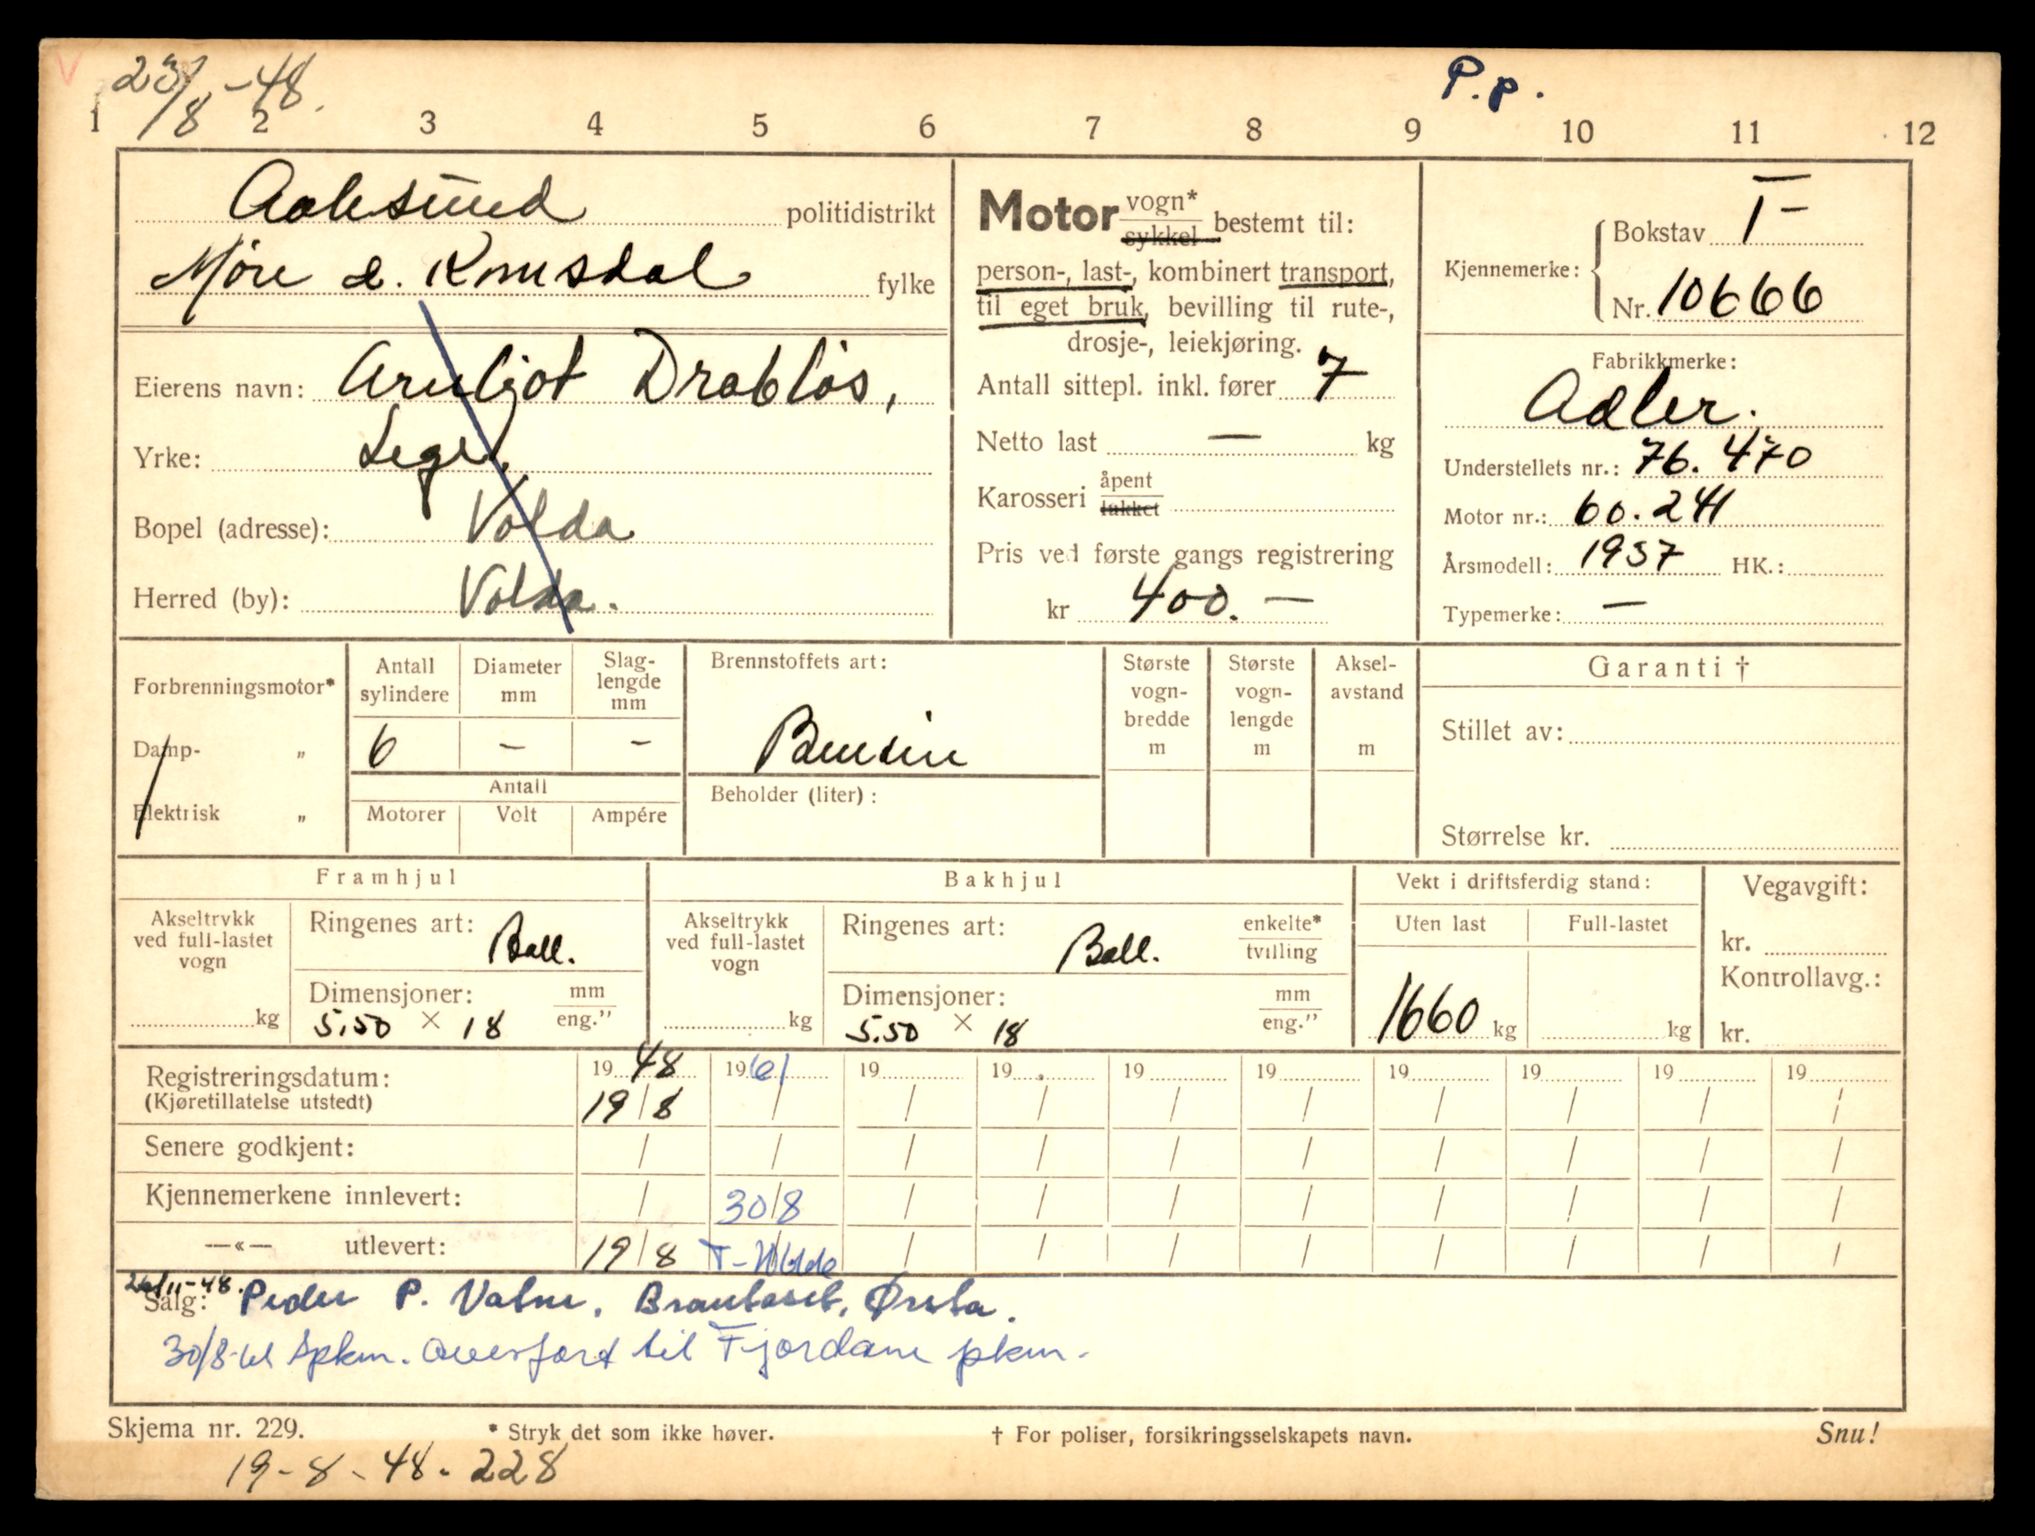 23/8 - 48.
P.p.
1 2 3 4 5 6 7 8 9 10 11 12
Aalesund politidistrikt
Møre & Romsdal fylke
Eierens navn: Arnljot Drabløs,
Yrke: Lege.
Bopel (adresse): Volda
Herred (by): Volda.
Motor vogn* sykkel bestemt til:
person-, last-, kombinert transport,
til eget bruk, bevilling til rute-,
drosje-, leiekjøring.
Antall sittepl. inkl. fører 7
Netto last — kg
Karosseri åpent lukket
Pris ved første gangs registrering
kr 400.—
Kjennemerke: Bokstav T-
Nr. 10666
Fabrikkmerke:
Adler.
Understellets nr.: 76.470
Motor nr.: 60.241
Årsmodell: 1937 HK.:
Typemerke: —
Forbrenningsmotor*
Damp- „
Elektrisk „
Antall sylindere
6
Diameter mm
—
Slag-lengde mm
—
Antall
Motorer Volt Ampére
Brennstoffets art:
Bensin
Beholder (liter):
Største vogn-bredde m
Største vogn-lengde m
Aksel-avstand m
Garanti †
Stillet av:
Størrelse kr.
Framhjul
Akseltrykk ved full-lastet vogn
kg
Ringenes art: Ball.
Dimensjoner: mm eng."
5.50 × 18
Bakhjul
Akseltrykk ved full-lastet vogn
kg
Ringenes art: Ball. enkelte* tvilling
Dimensjoner: mm eng."
5.50 × 18
Vekt i driftsferdig stand:
Uten last Full-lastet
1660 kg kg
Vegavgift:
kr.
Kontrollavg.:
kr.
19 48 19 61 19 19 19 19 19 19 19 19
Registreringsdatum:
(Kjøretillatelse utstedt) 19/8 / / / / / / / / /
Senere godkjent: / / / / / / / / / /
Kjennemerkene innlevert: / 30/8 / / / / / / / /
—«— utlevert: 19/8 / / / / / / / /
26/11-48.
Salg: Peder P. Vatne, Ørsta.
30/8-61 overført til Fjordane pkm.
Skjema nr. 229.
* Stryk det som ikke høver.
† For poliser, forsikringsselskapets navn.
Snu!
19-8-48. 228